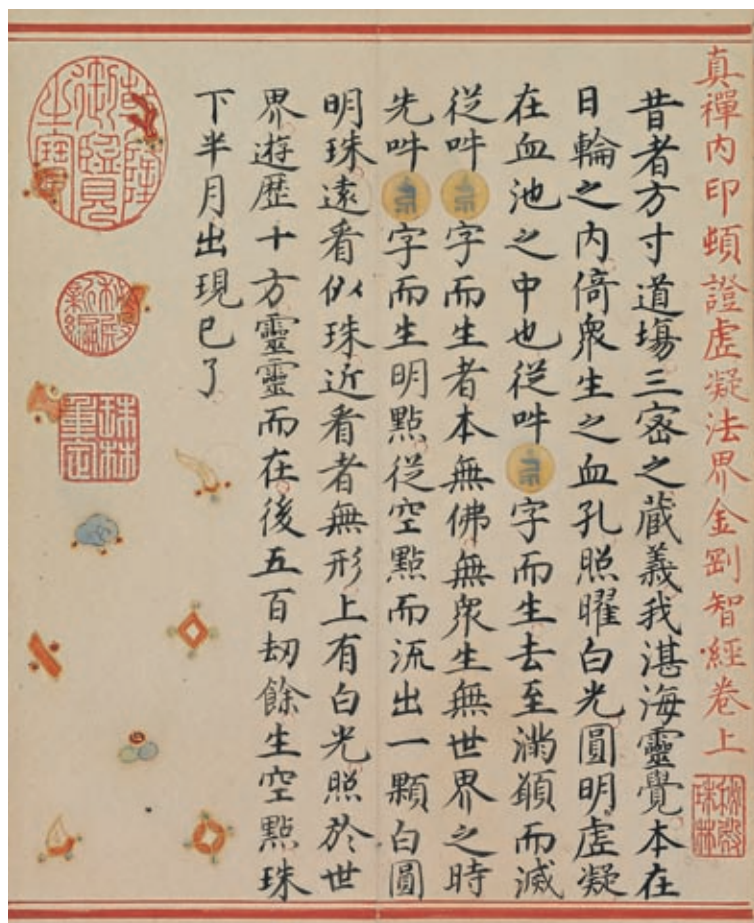 真禪內印頓證虛凝法界金剛智經卷上
昔者方寸道場三密之藏義我湛海靈覺本在
日輪之內倚衆生之血孔照曜白光圓明虛凝
在血池之中也從吽字而生去至滿頷而滅
從吽字而生者本無佛無衆生無世界之時
先吽字而生明點從空點而流出一顆白圓
明珠遠看似珠近看者無形上有白光照於世
界遊歷十方靈靈而在後五百劫餘生空點珠
下半月出現已了
秘殿珠林
秘殿新編
珠林重定